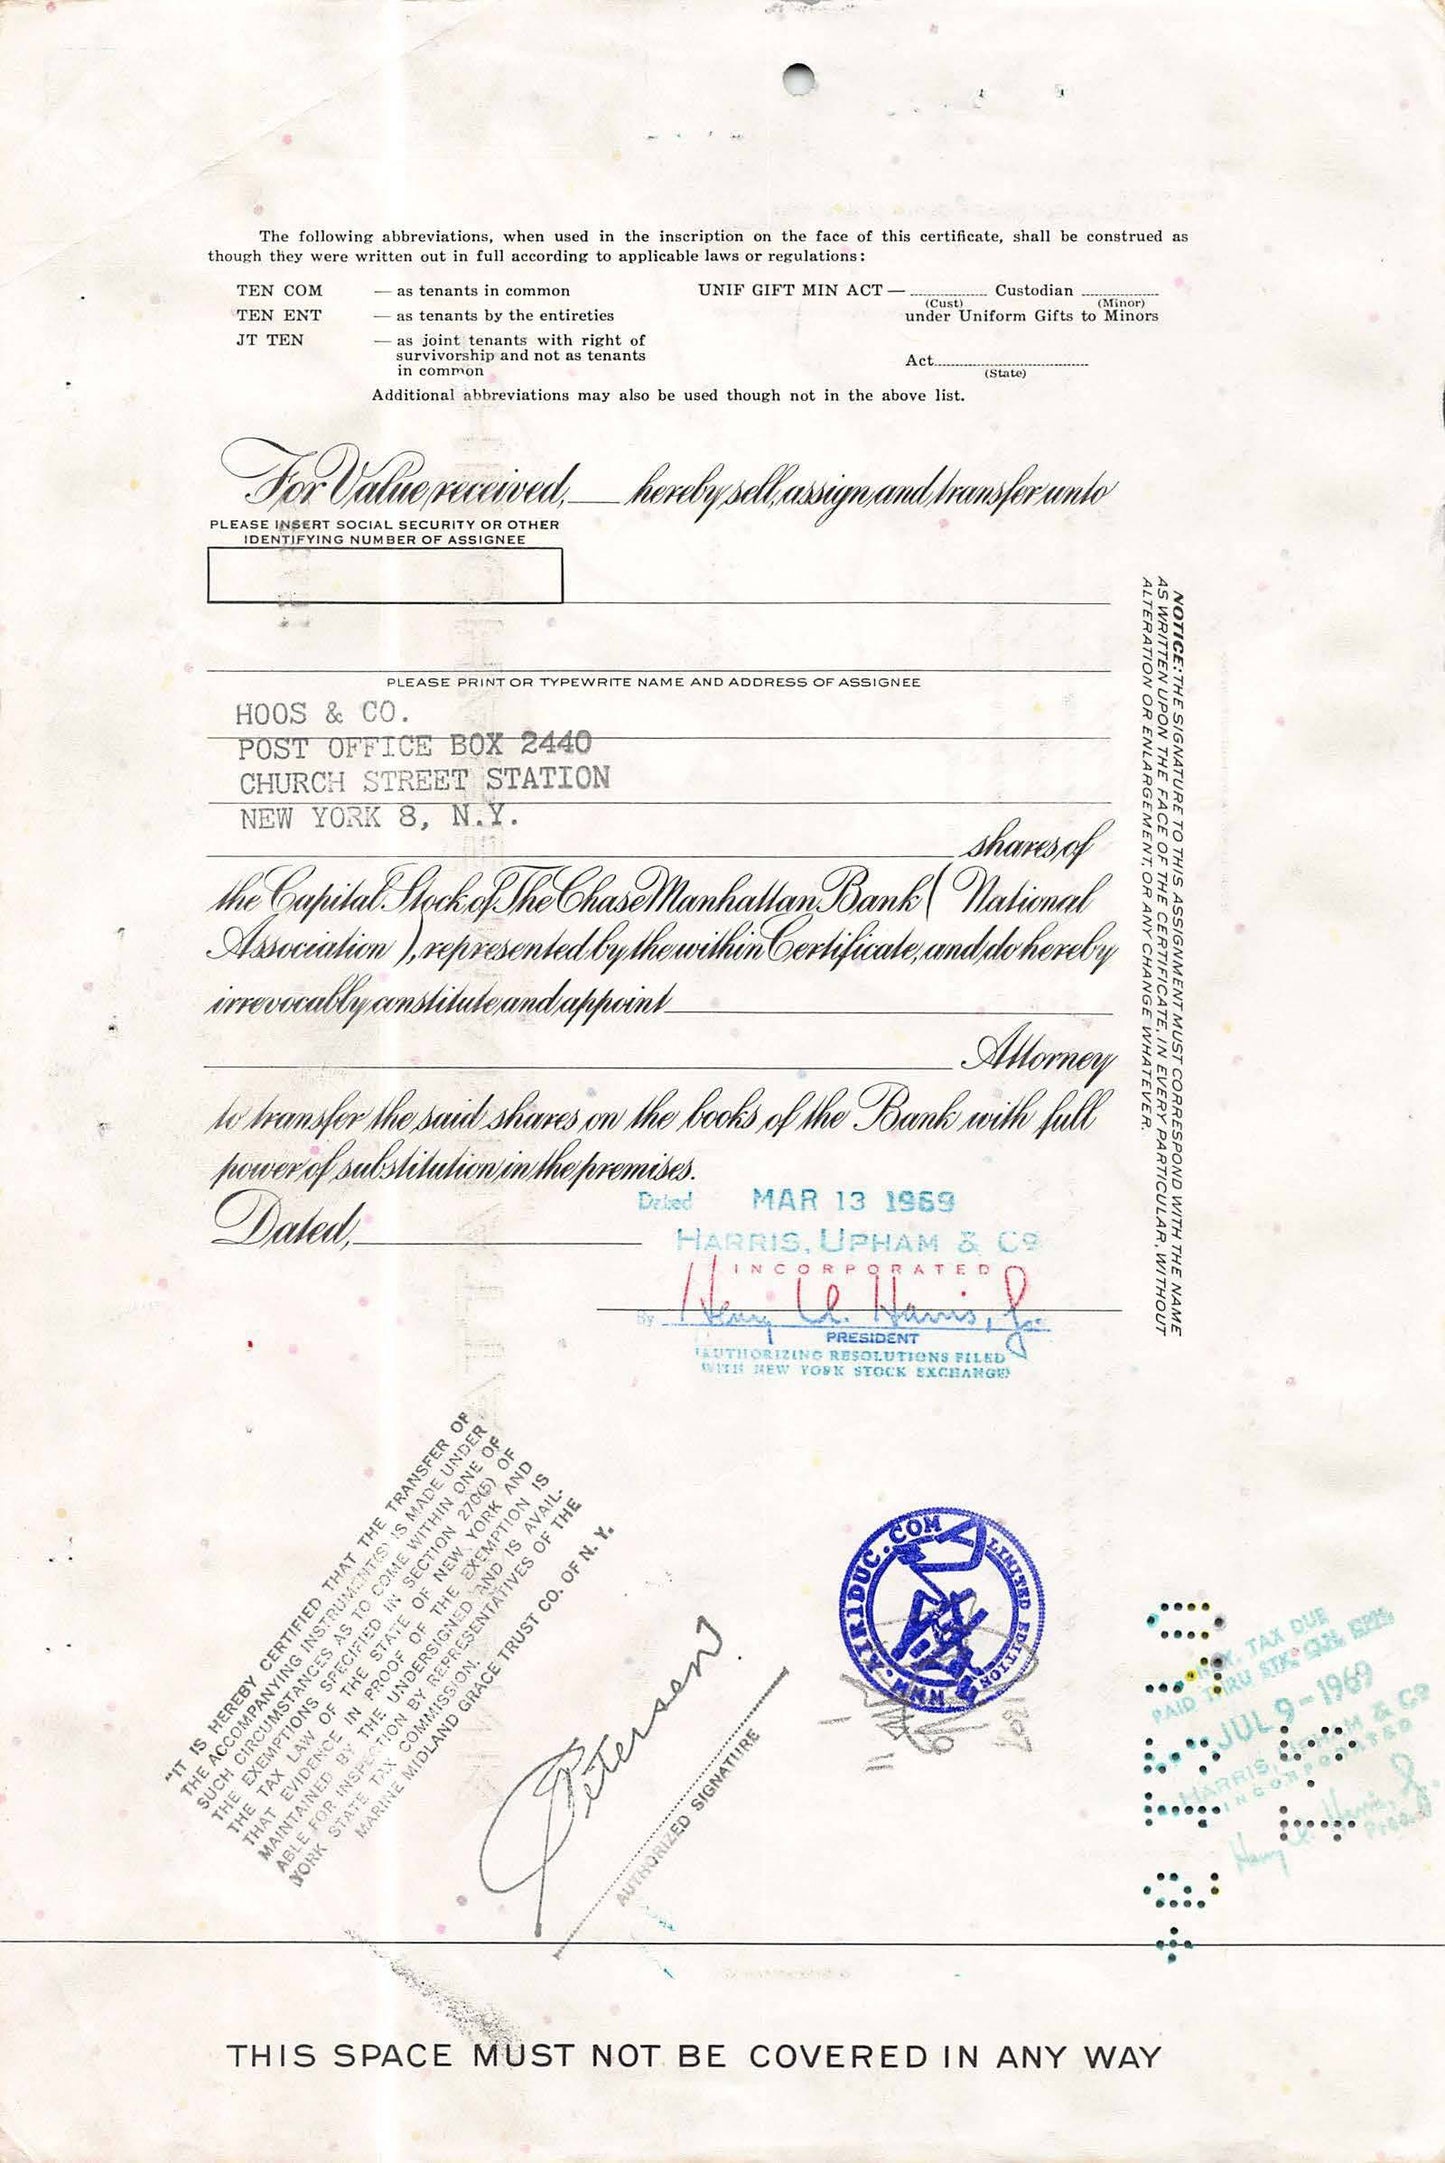 The following abbreviations, when used in the inscription on the face of this certificate, shall be construed as
though they were written out in full according to applicable laws or regulations:
TEN COM — as tenants in common
TEN ENT — as tenants by the entireties
JT TEN — as joint tenants with right of
survivorship and not as tenants
in common
UNIF GIFT MIN ACT — Custodian
(Cust) (Minor)
under Uniform Gifts to Minors
Act
(State)
Additional abbreviations may also be used though not in the above list.
For Value received, hereby sell, assign and transfer unto
PLEASE INSERT SOCIAL SECURITY OR OTHER
IDENTIFYING NUMBER OF ASSIGNEE
PLEASE PRINT OR TYPEWRITE NAME AND ADDRESS OF ASSIGNEE
HOOS & CO.
POST OFFICE BOX 2440
CHURCH STREET STATION
NEW YORK 8, N.Y.
shares of
the Capital Stock of The Chase Manhattan Bank ( National
Association ), represented by the within Certificate, and do hereby
irrevocably constitute and appoint
Attorney
to transfer the said shares on the books of the Bank with full
power of substitution in the premises.
Dated,
NOTICE: THE SIGNATURE TO THIS ASSIGNMENT MUST CORRESPOND WITH THE NAME
AS WRITTEN UPON THE FACE OF THE CERTIFICATE, IN EVERY PARTICULAR, WITHOUT
ALTERATION OR ENLARGEMENT, OR ANY CHANGE WHATEVER.
Dated MAR 13 1969
HARRIS, UPHAM & Co
INCORPORATED
By Henry U. Harris, Jr.
PRESIDENT
(AUTHORIZING RESOLUTIONS FILED
WITH NEW YORK STOCK EXCHANGE)
"IT IS HEREBY CERTIFIED THAT THE TRANSFER OF
THE ACCOMPANYING INSTRUMENT(S) IS MADE UNDER
SUCH CIRCUMSTANCES AS TO COME WITHIN ONE OF
THE EXEMPTIONS SPECIFIED IN SECTION 270(5) OF
THE TAX LAW OF THE STATE OF NEW YORK AND
THAT EVIDENCE IN PROOF OF THE EXEMPTION IS
MAINTAINED BY THE UNDERSIGNED AND IS AVAIL-
ABLE FOR INSPECTION BY REPRESENTATIVES OF THE
YORK STATE TAX COMMISSION.
MARINE MIDLAND GRACE TRUST CO. OF N. Y.
Peterson
AUTHORIZED SIGNATURE
WWW.AIRIDUC.COM
LIMITED EDITION
TAX DUE
PAID THRU STK.
JUL 9 - 1969
HARRIS, UPHAM & Co
INCORPORATED
Henry U. Harris, Jr.
President
THIS SPACE MUST NOT BE COVERED IN ANY WAY